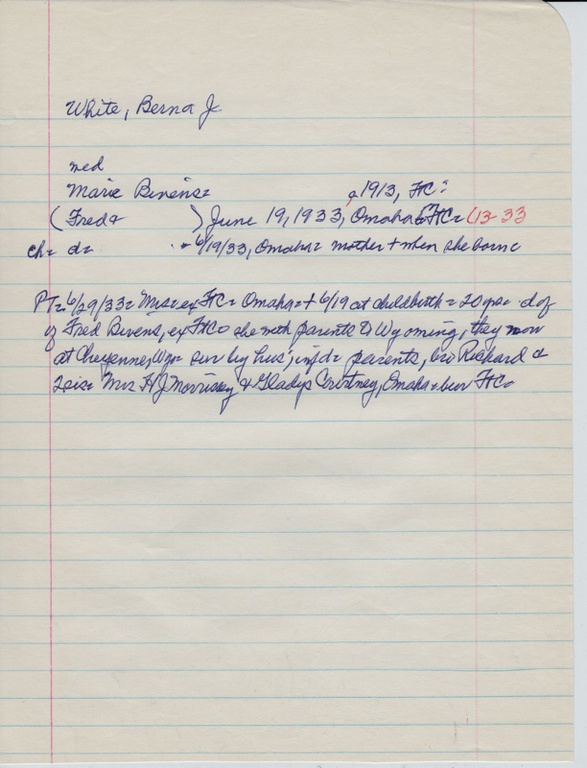 White, Berna J.
med
Marie Bivens= a 1913, FtC=
(Fred & ) June 19, 1933, Omaha= FtC= (13-33
ch= d= *+ 6/19/33, Omaha= mother + when she born
PT= 6/29/33= Mrs= ex FtC= Omaha= + 6/19 at childbirth= 20 yrs= d of
y Fred Bivens, ex FtC= she with parents to Wyoming, they now
at Cheyenne, Wy= sur by hus; inf d= parents, bro Richard &
2 sis= Mrs H J Morrissey & Gladys Courtney, Omaha= bur FtC=